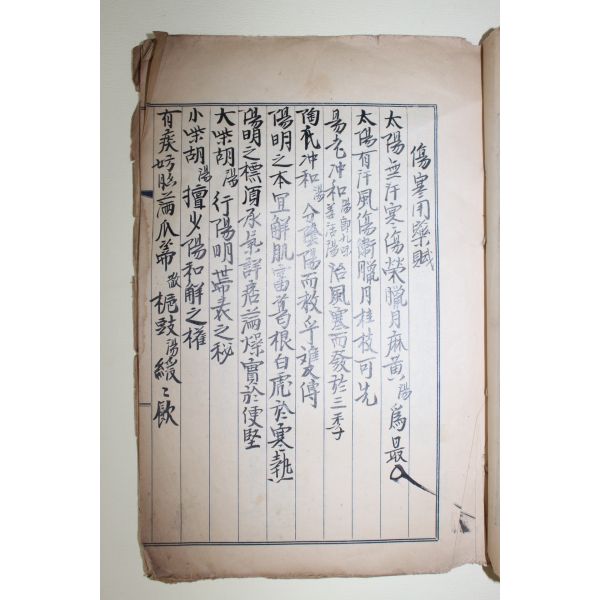 傷寒用藥賦
太陽無汗寒傷榮臘月麻黃湯爲最
太陽有汗風傷衛臘月桂枝可先
易老冲和湯即九味羌活湯治風寒而發於三季
陶氏冲和湯分陰陽而救乎
陽明之本宜解肌葛根白虎於寒熱
陽明之標酒承氣詳痞滿燥實於便堅
大柴胡湯行陽明表之秘
小柴胡湯擅少陽和解之權
有痰妨胸滿瓜蒂散梔豉湯緩〻飲